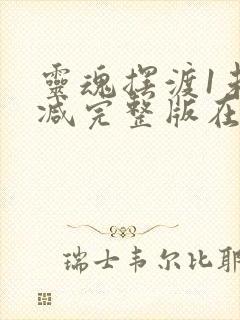 靈魂摆渡1未
减完整版在
瑞士韦尔比耶